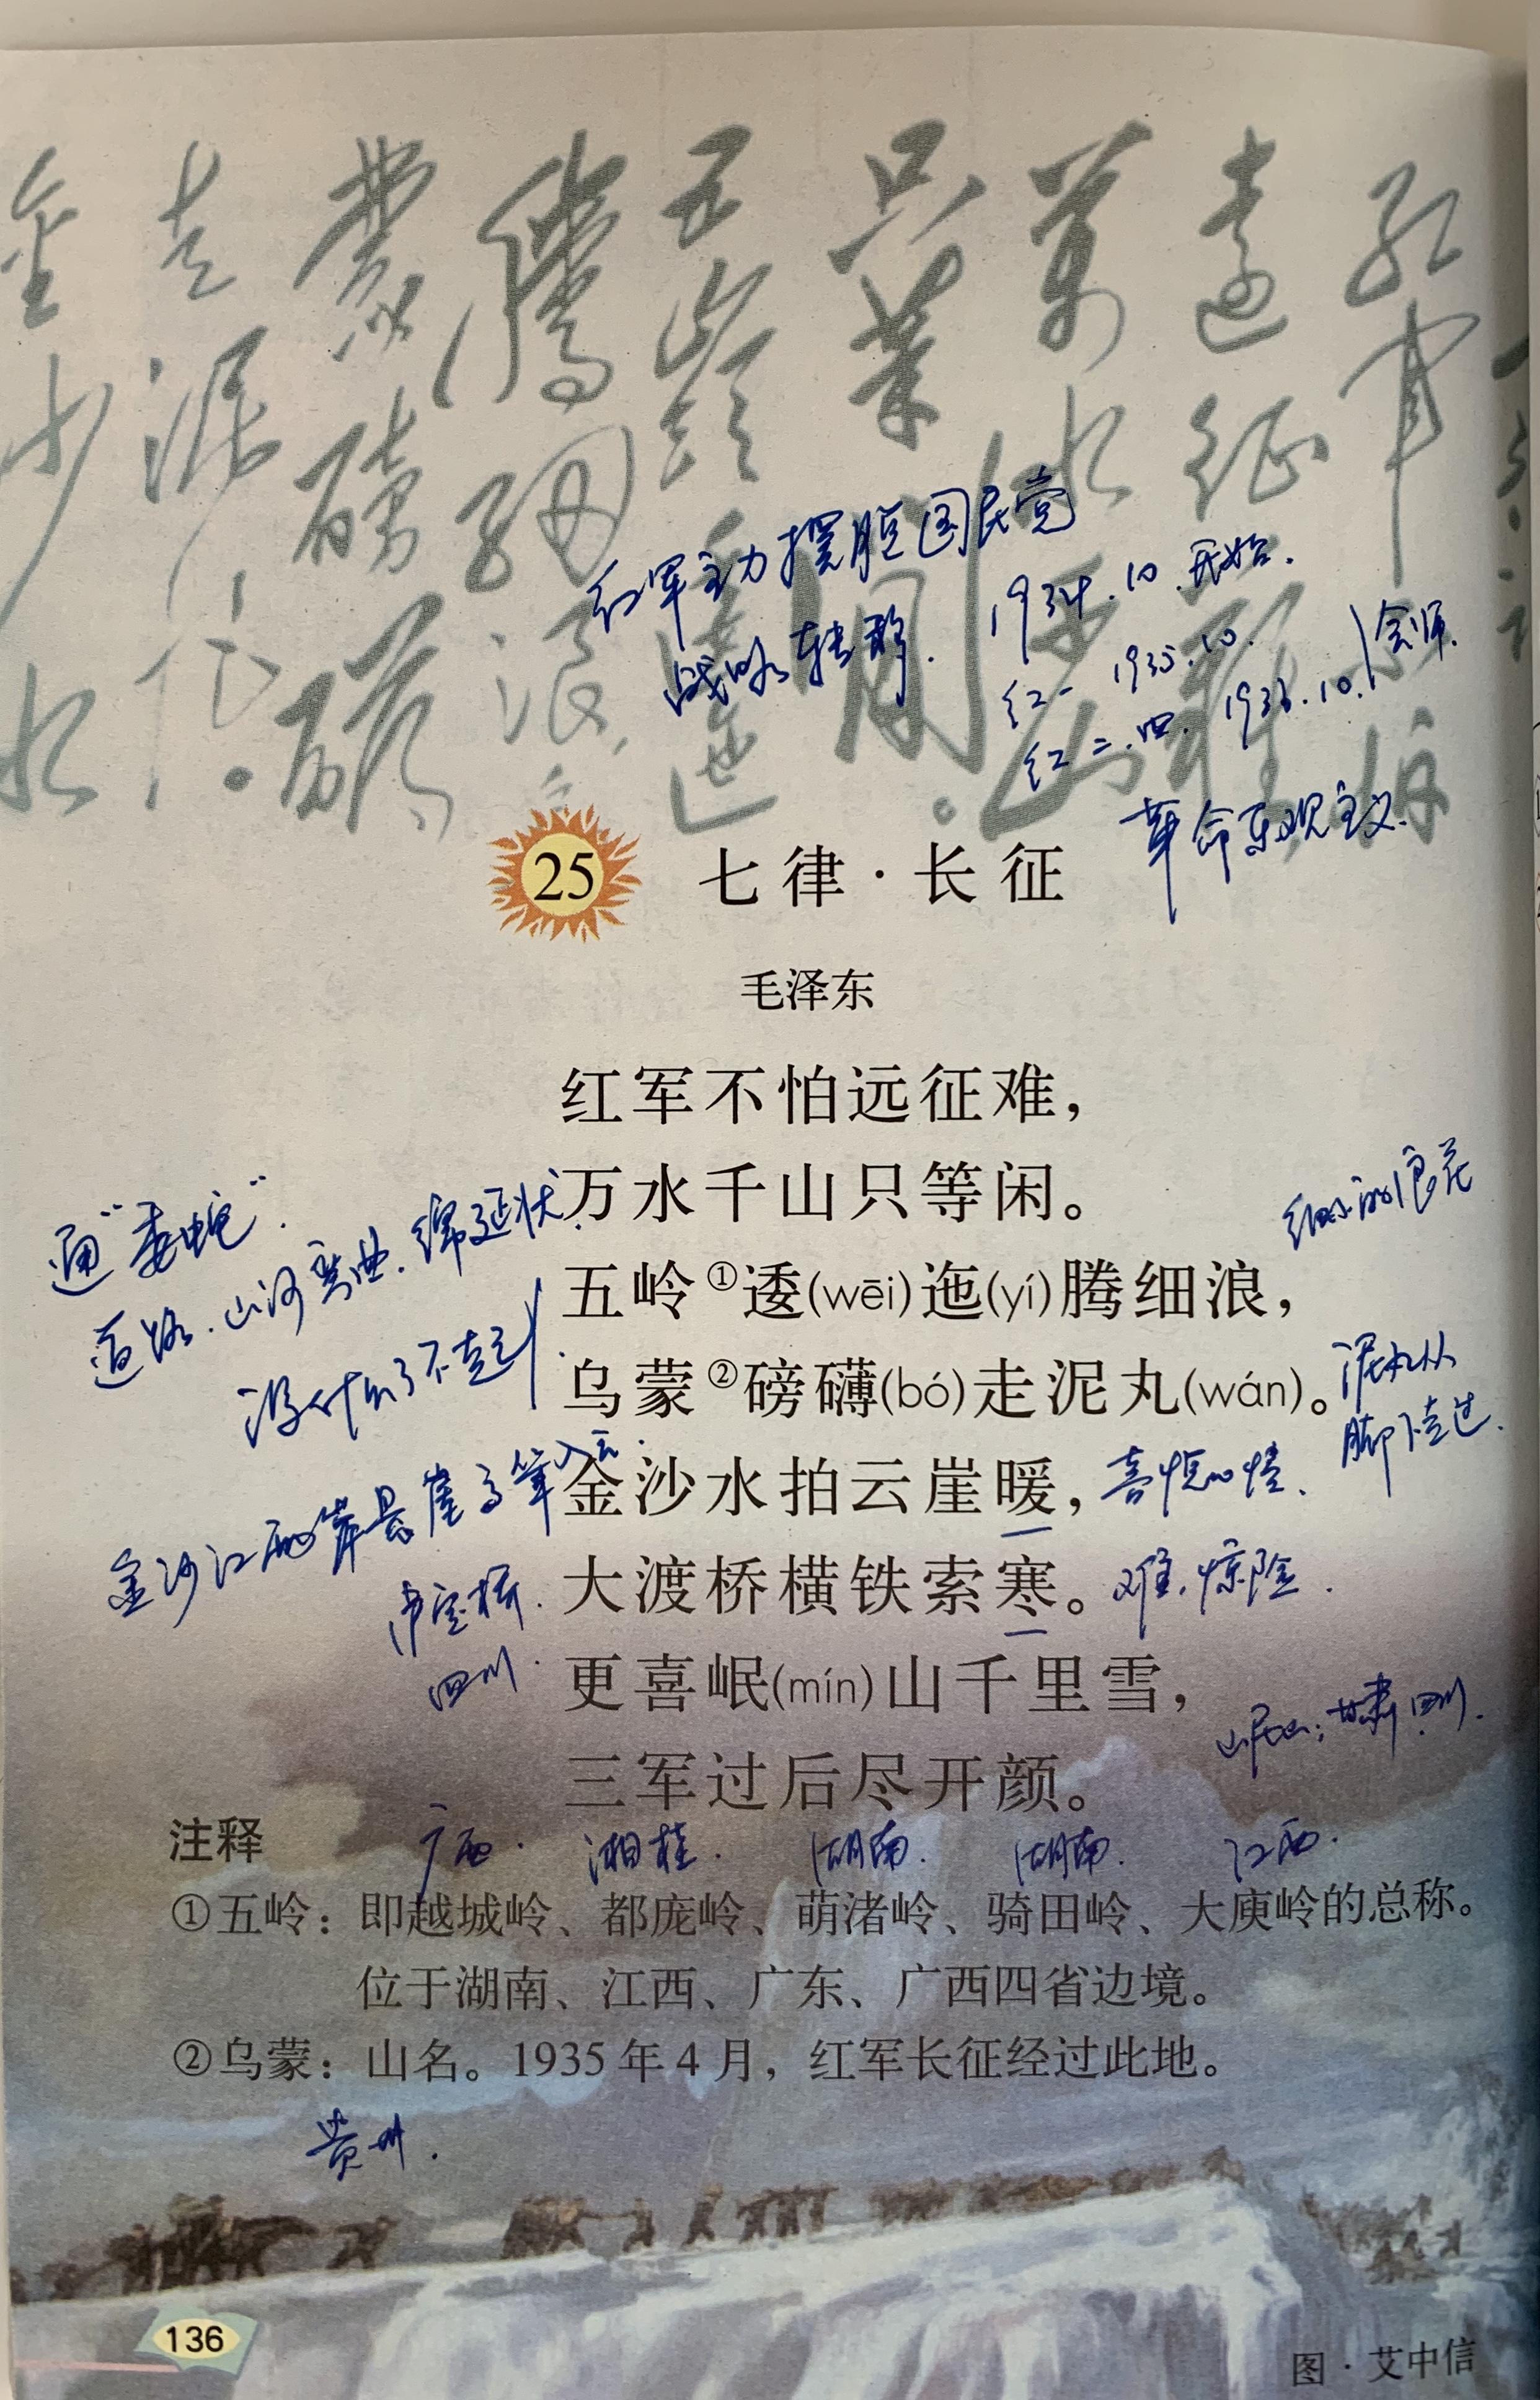 红军不怕远征难
万水千山只等闲。
五岭逶迤
腾细浪
蒙磅礴
走泥丸。
金沙水
红军主力摆脱国民党
战略转移.
1934.10.开始.
红一 1935.10.
红二.四. 1936.10.
会师.
革命乐观主义.
25 七律·长征
毛泽东
红军不怕远征难，
万水千山只等闲。
通“委蛇”.
道路.山河弯曲.绵延状.
细小的浪花
五岭①逶(wēi)迤(yí)腾细浪，
没什么了不起
乌蒙②磅礴(bó)走泥丸(wán)。
泥丸从
脚下走过.
金沙江两岸悬崖高耸入云.
金沙水拍云崖暖，
喜悦心情、
泸定桥.
四川.
大渡桥横铁索寒。
难,惊险.
更喜岷(mín)山千里雪，
岷山:甘肃.四川.
三军过后尽开颜。
注释
广西. 湘桂. 湖南. 湖南. 江西.
①五岭：即越城岭、都庞岭、萌渚岭、骑田岭、大庾岭的总称。
位于湖南、江西、广东、广西四省边境。
②乌蒙：山名。1935年4月，红军长征经过此地。
贵州.
136
图·艾中信